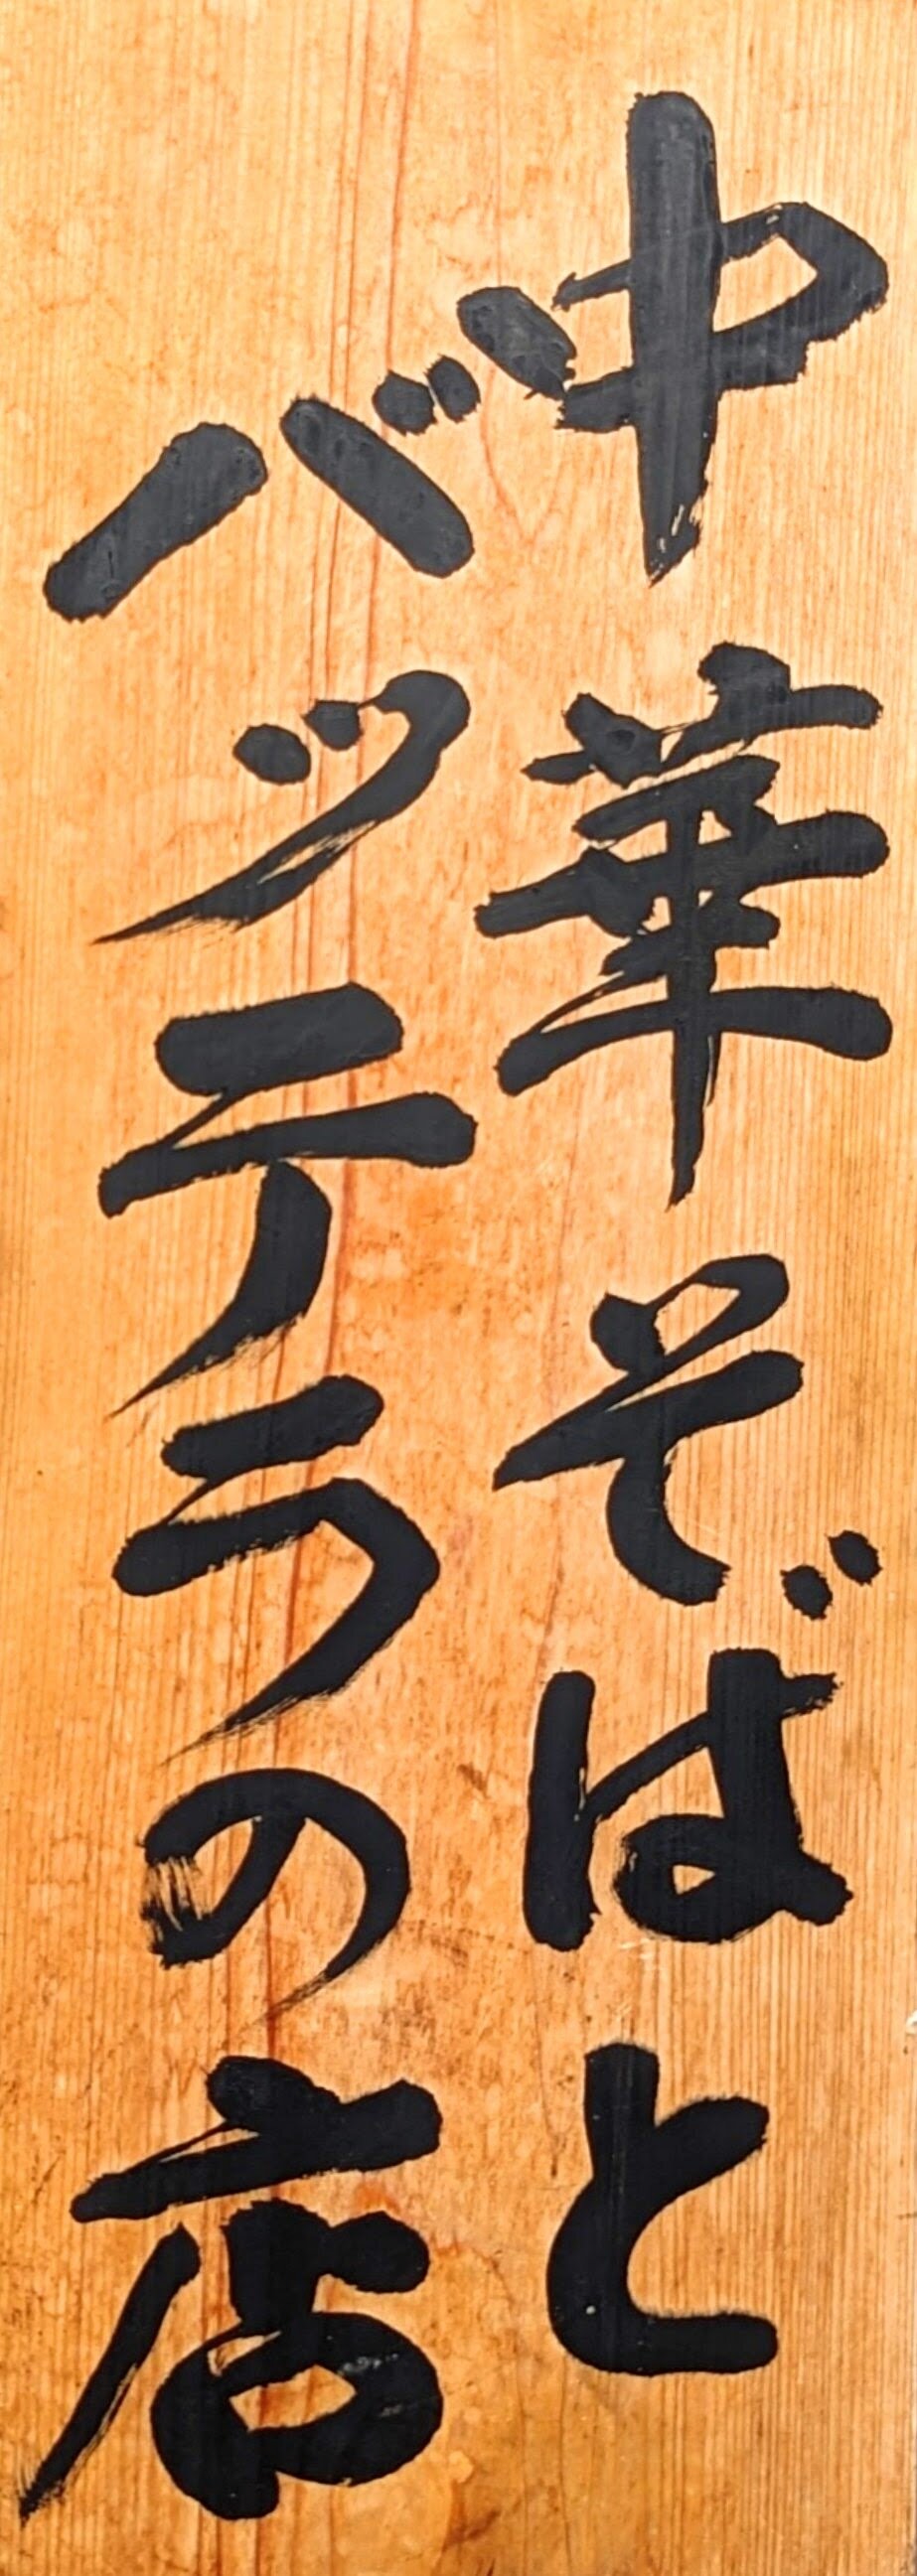 中華そばと
バッテラの店